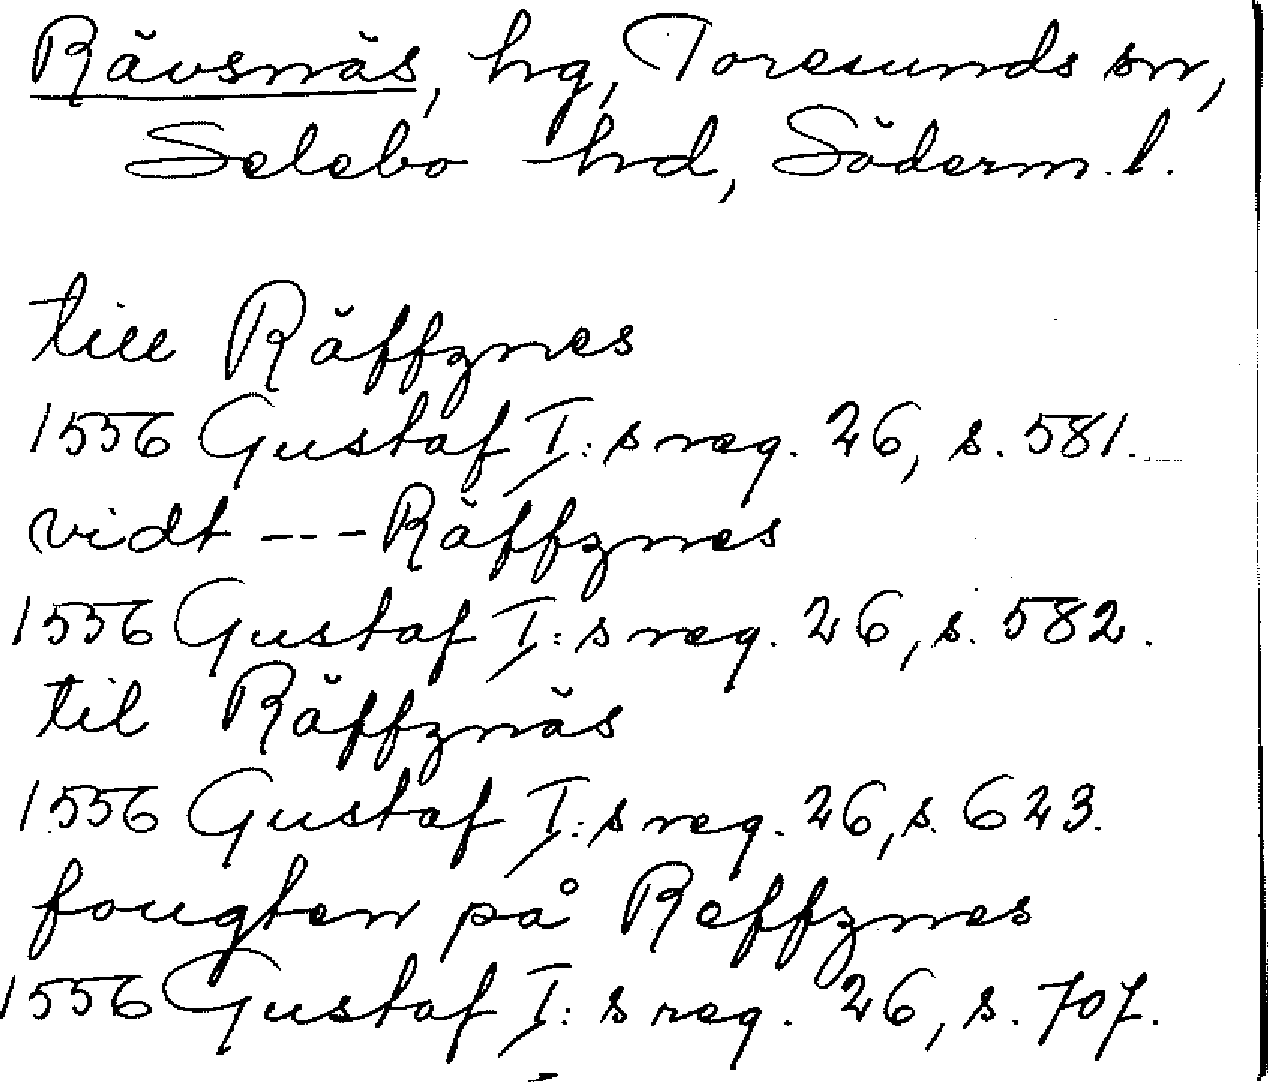 Rävsnäs, hg, Toresunds sn,
Selebo hd, Söderm. l.
till Räffznes
1556 Gustaf I:s reg. 26, s. 581.
vidt --- Räffznes
1556 Gustaf I:s reg. 26, s. 582.
til Räffznäs
1556 Gustaf I:s reg. 26, s. 623.
fougten på Reffznes
1556 Gustaf I:s reg. 26, s. 707.